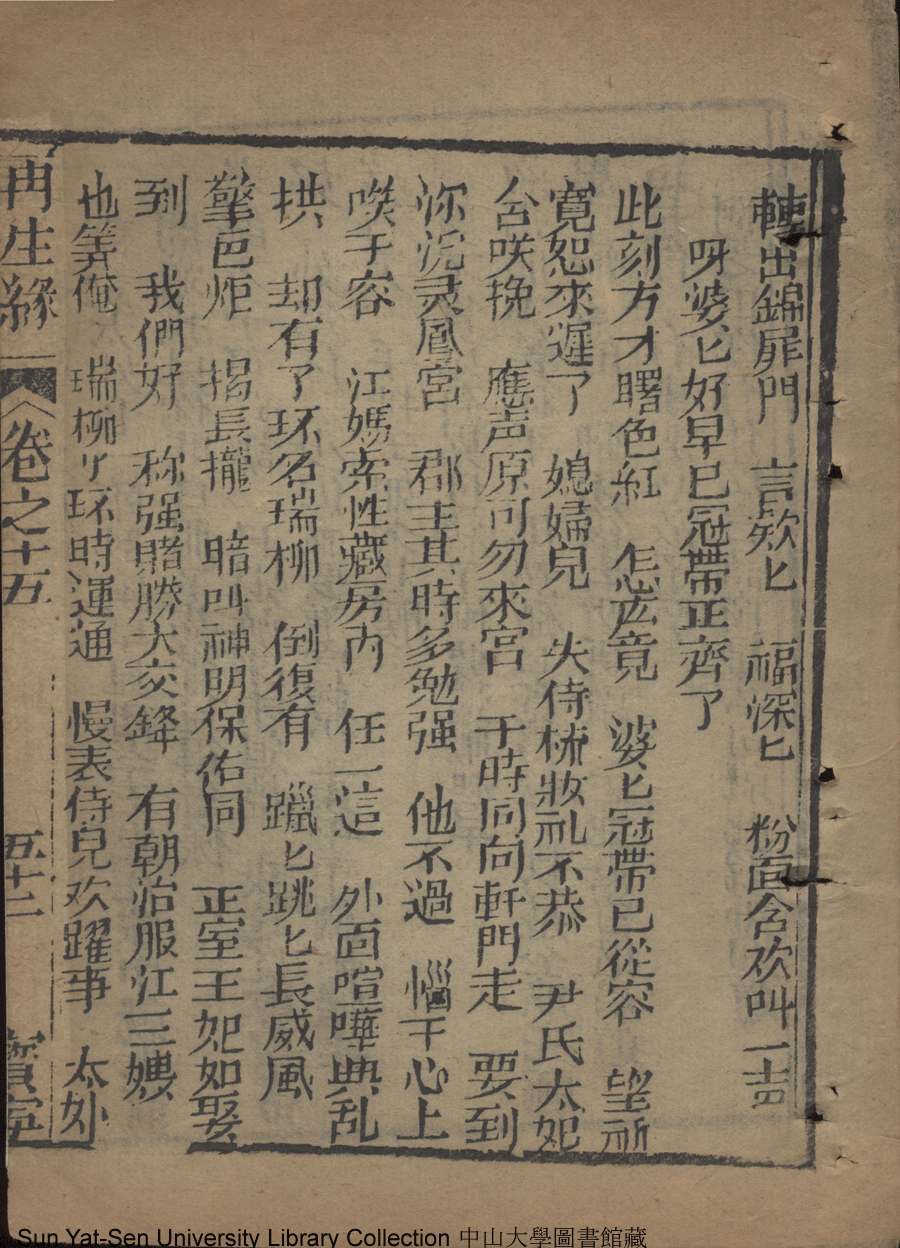 轉出錦扉門　言欵匕　福深匕　粉面含欢叫一声
呀婆匕好早巳冠帶正齊了
此刻方才曙色紅　怎庅竟　婆匕冠帶已從容　望祈
寬恕來遲了　媳婦兒　失侍梳妝礼不恭　尹氏太妃
含咲挽　應声原可勿來宮　于時同向軒門走　要到
沵沅灵鳳宮　郡主其時多勉强　他不過　惱于心上
咲于容　江媽索性藏房内　任一這　外面喧嘩典乱
拱　却有了环名瑞柳　倒復有　躐匕跳匕長威風
擎邑炬　揭長攏　暗叫神明保佑同　正室王妃如娶
到　我們好　称强賭勝大交鋒　有朝怡服江三嫂
也筭俺　瑞柳丫环時運通　慢表侍兒欢躍事　太妃
再生緣　卷之十五　五十二　寳寧
Sun Yat-Sen University Library Collection 中山大學圖書館藏